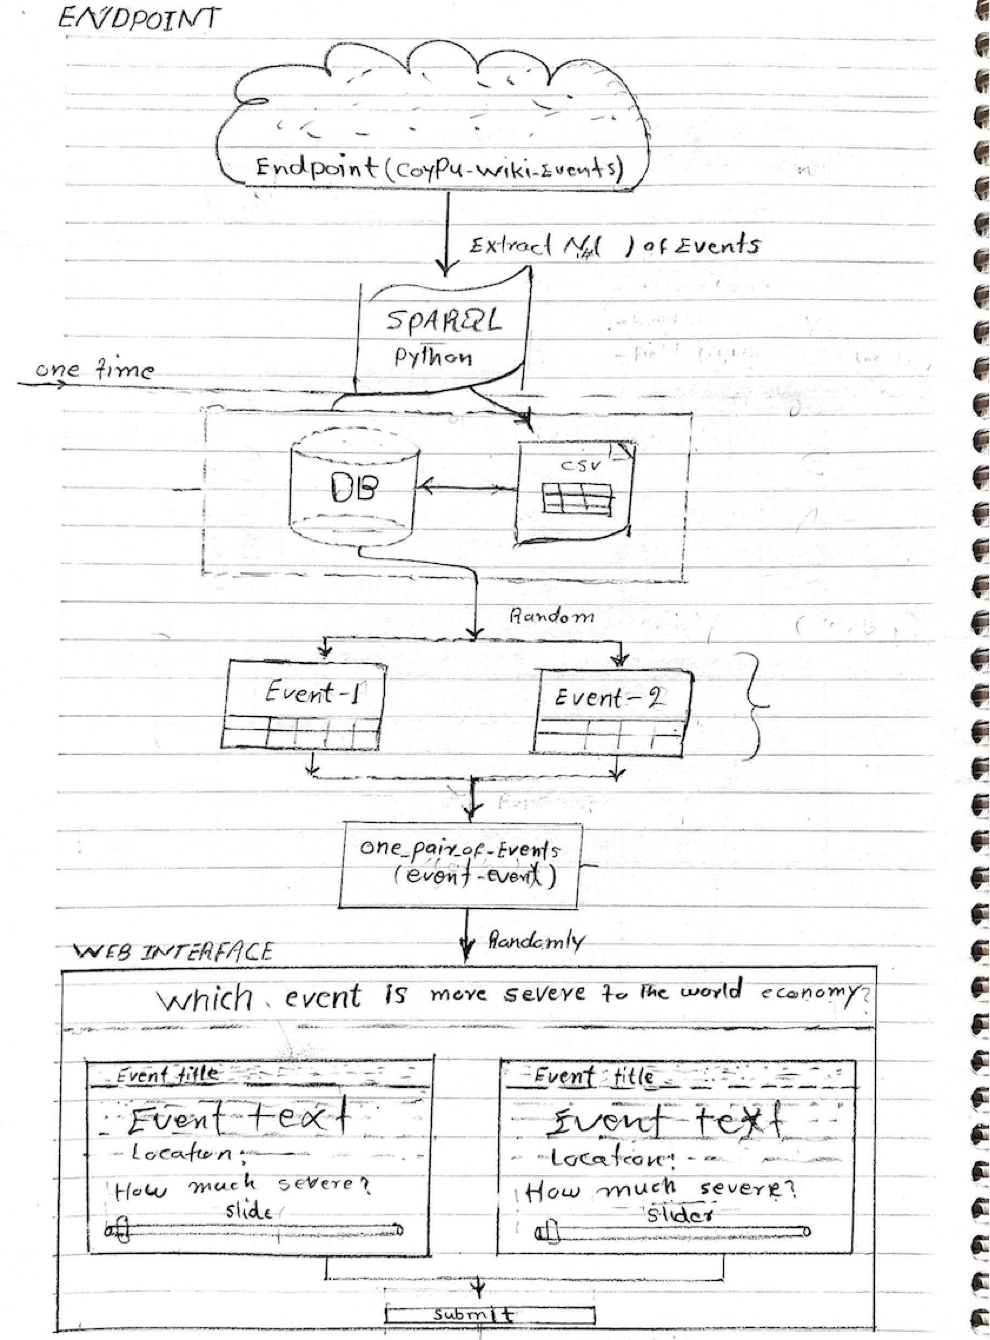 ENDPOINT
Endpoint (CoyPu-Wiki-Events)
Extract ( ) of Events
SPARQL
Python
one time
DB
CSV
Random
Event-1
Event-2
one_pair_of-Events
(event-event)
Randomly
WEB INTERFACE
Which event is more severe to the world economy?
Event title
Event text
Location:
How much severe?
slide
Event title
Event text
Location:
How much severe?
slider
submit